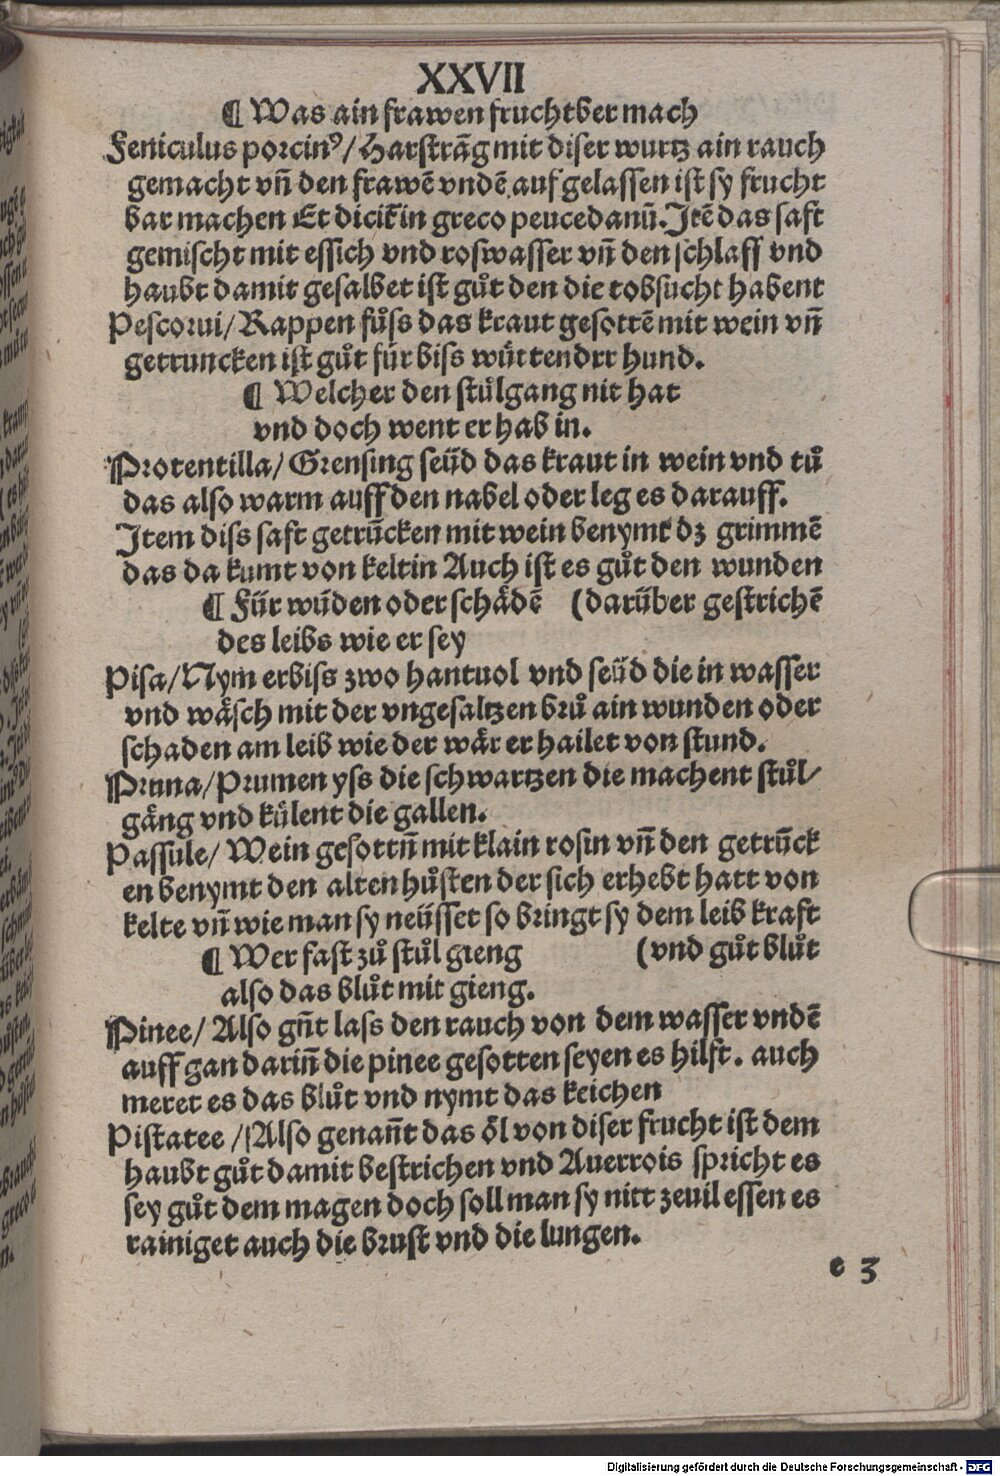 XXVII
¶ Was ain frawen fruchtber mach
Feniculus porcinꝰ/ Harstrãg mit diser wurtz ain rauch
gemacht vñ den frawẽ vndẽ auf gelassen ist sy frucht
bar machen Et dicit̃ in greco peucedanũ. Jtẽ das saft
gemischt mit essich vnd roswasser vñ den schlaff vnd
haubt damit gesalbet ist gůt den die tobsucht habent
Pescorui/ Rappen fůſs das kraut gesottẽ mit wein vñ
getruncken ist gůt für biſs wüttendrr hund.
¶ Welcher den stůlgang nit hat
vnd doch went er hab in.
Protentilla/ Grensing seüd das kraut in wein vnd tů
das also warm auff den nabel oder leg es darauff.
Jtem diſs saft getrũcken mit wein benymt dz grimmẽ
das da kumt von keltin Auch ist es gůt den wunden
¶ Für wũden oder schaͤdẽ (darüber gestrichẽ
des leibs wie er sey
Pisa/ Nym erbiſs zwo hantuol vnd seüd die in wasser
vnd waͤsch mit der vngesaltzen brů ain wunden oder
schaden am leib wie der waͤr er hailet von stund.
Pruna/ Prumen yſs die schwartzen die machent stůl⸗
gaͤng vnd kuͤlent die gallen.
Passule/ Wein gesottñ mit klain rosin vñ den getrũck
en benymt den alten hůsten der sich erhebt hatt von
kelte vñ wie man sy neüsset so bringt sy dem leib kraft
¶ Wer fast zů stůl gieng (vnd gůt blůt
also das blůt mit gieng.
Pinee/ Also gñt laſs den rauch von dem wasser vndẽ
auff gan dariñ die pinee gesotten seyen es hilft. auch
meret es das blůt vnd nymt das keichen
Pistatee / Also genañt das oͤl von diser frucht ist dem
haubt gůt damit bestrichen vnd Auerrois spricht es
sey gůt dem magen doch soll man sy nitt zeuil essen es
rainiget auch die brust vnd die lungen.
e 3
Digitalisierung gefördert durch die Deutsche Forschungsgemeinschaft - DFG